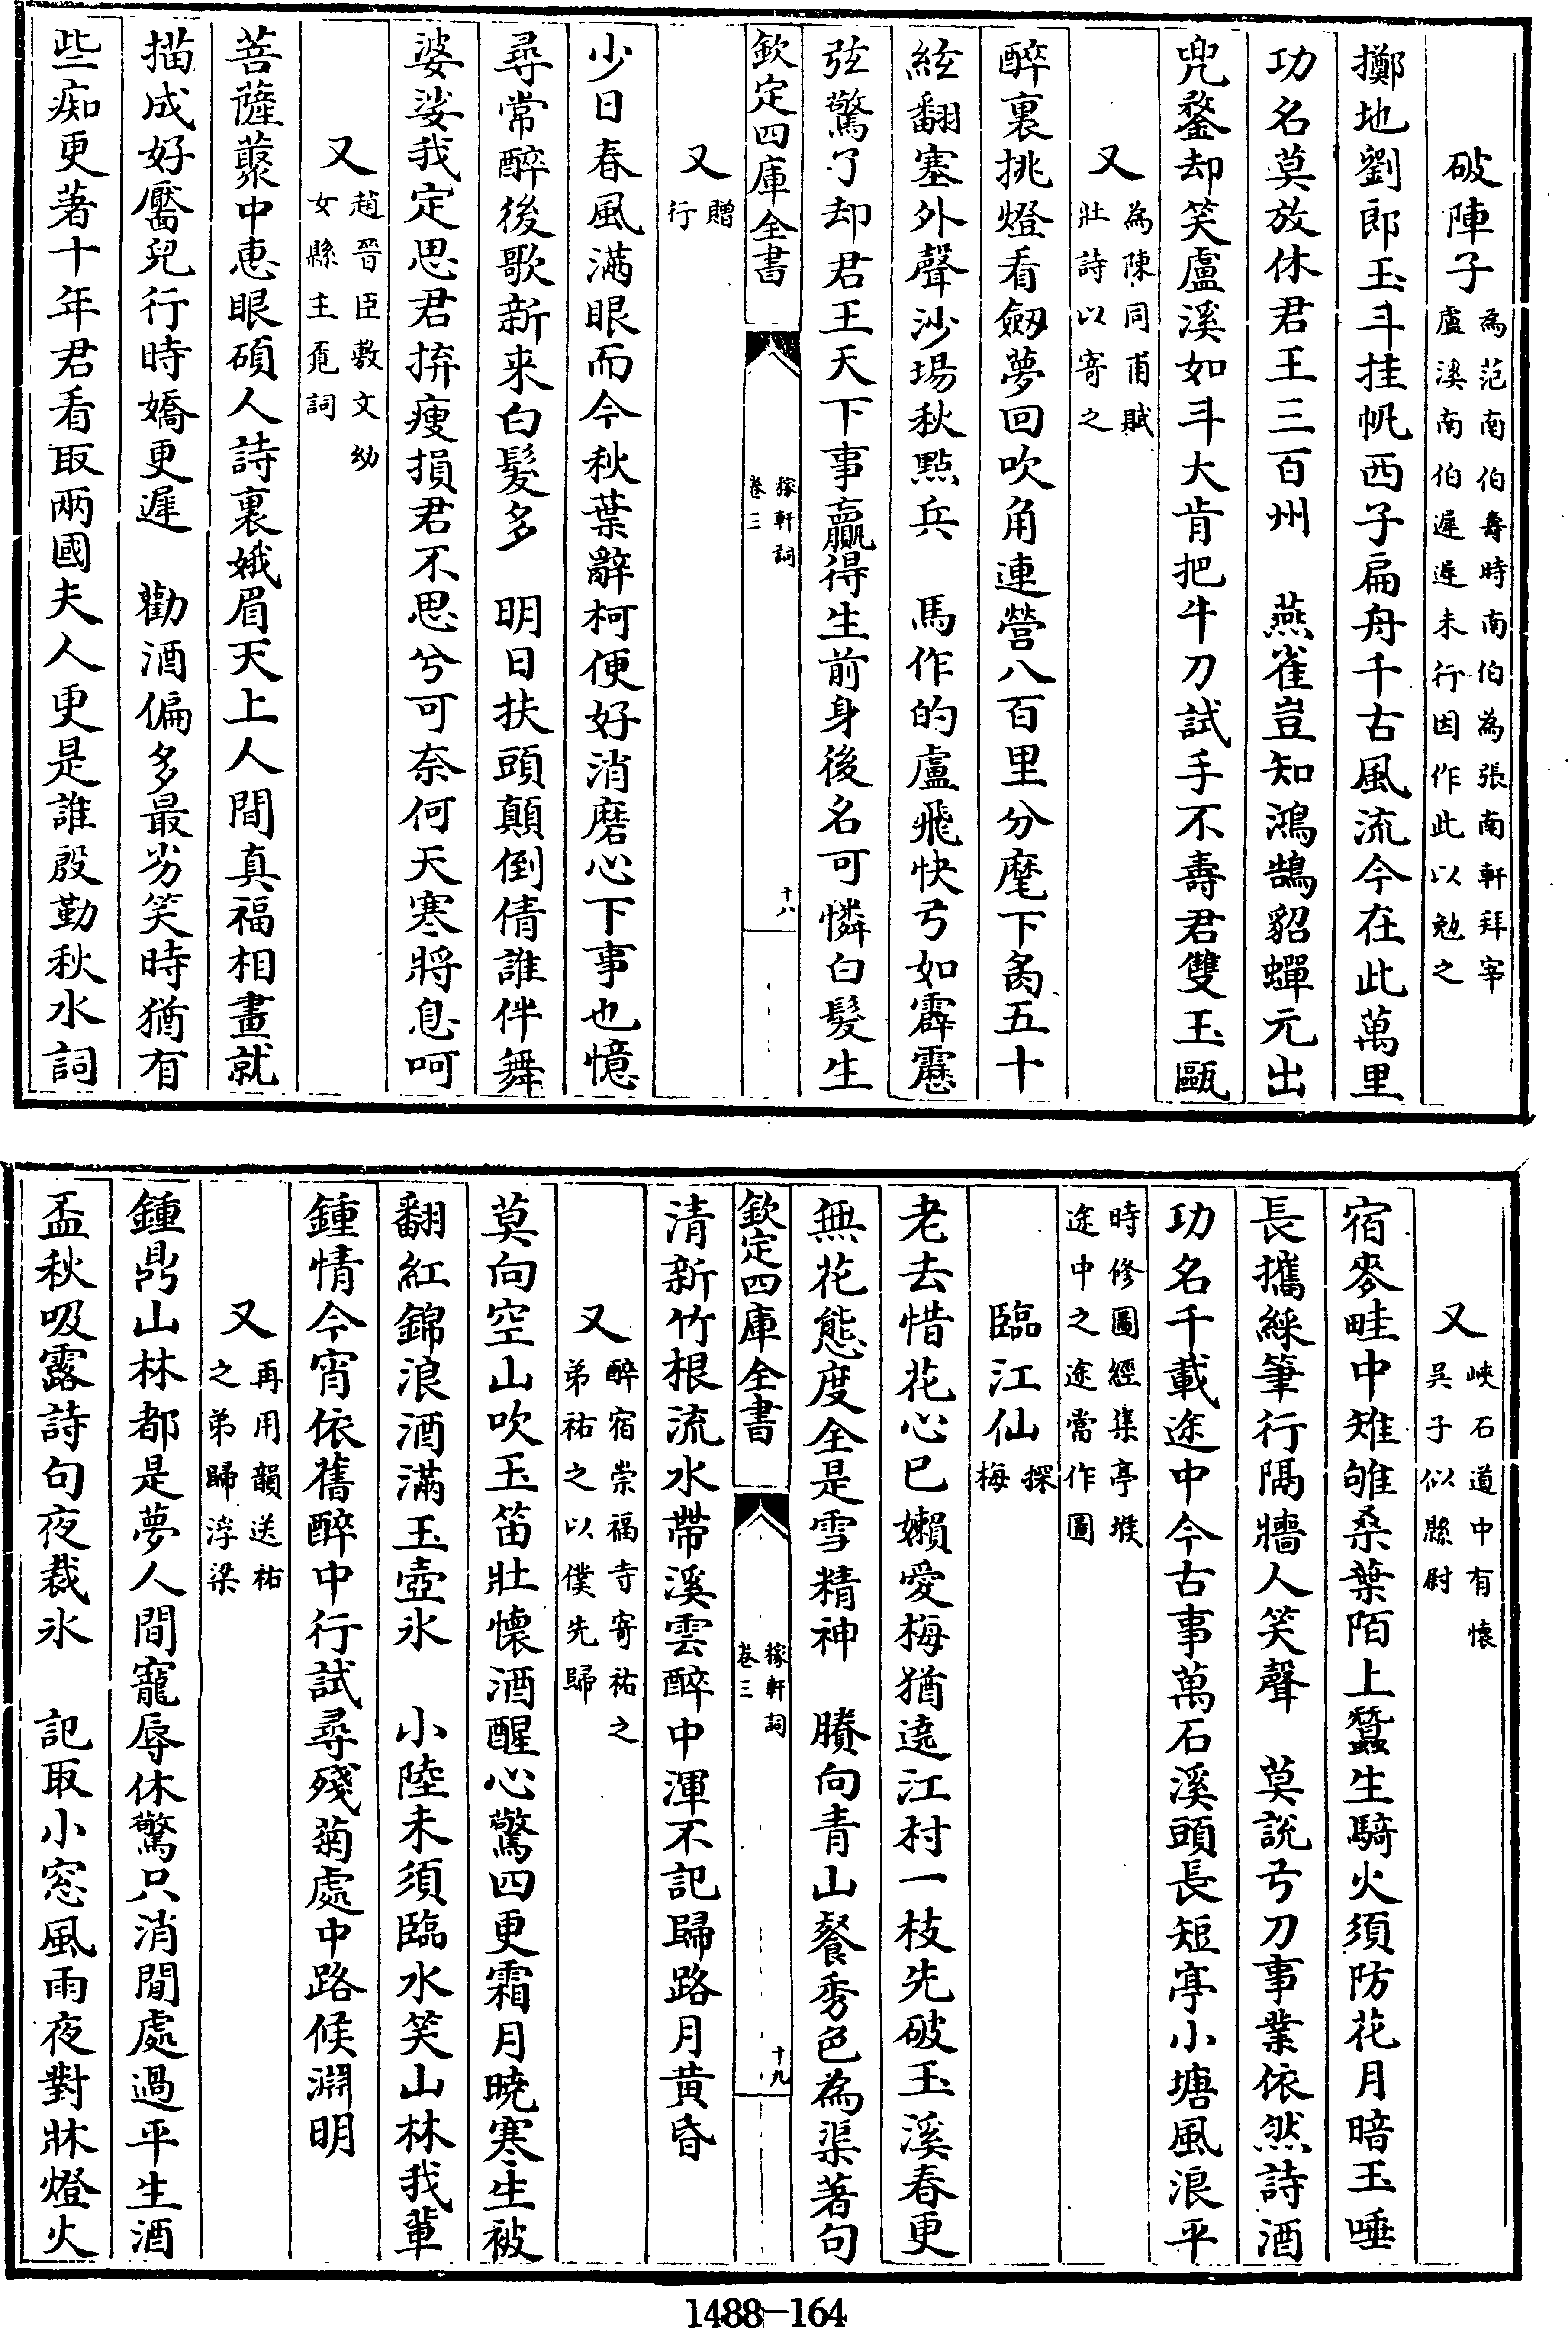 破陣子為范南伯壽時南伯為張南軒拜宰盧溪南伯遲遲未行因作此以勉之
擲地劉郎玉斗挂帆西子扁舟千古風流今在此萬里
功名莫放休君王三百州　燕雀豈知鴻鵠貂蟬元出
兜鍪却笑盧溪如斗大肯把牛刀試手不壽君雙玉甌
又為陳同甫賦壯詩以寄之
醉裏挑燈看劔夢回吹角連營八百里分麾下炙五十
絃翻塞外聲沙場秋點兵　馬作的盧飛快弓如霹靂
弦驚了却君王天下事贏得生前身後名可憐白髮生
欽定四庫全書　稼軒詞卷三　十八
又贈行
少日春風滿眼而今秋葉辭柯便好消磨心下事也憶
尋常醉後歌新来白髮多　明日扶頭顛倒倩誰伴舞
婆娑我定思君拚瘦損君不思兮可奈何天寒將息呵
又趙晉臣敷文幼女縣主覓詞
菩薩叢中惠眼碩人詩裏娥眉天上人間真福相畫就
描成好靨兒行時嬌更遲　勸酒偏多最劣笑時猶有
些痴更著十年君看取兩國夫人更是誰殷勤秋水詞
又峽石道中有懷吳子似縣尉
宿麥畦中雉雊桑葉陌上蠶生騎火須防花月暗玉唾
長攜綵筆行隔牆人笑聲　莫說弓刀事業依然詩酒
功名千載途中今古事萬石溪頭長短亭小塘風浪平
時修圖經集亭堠途中之途當作圖
臨江仙探梅
老去惜花心已嬾愛梅猶遶江村一枝先破玉溪春更
無花態度全是雪精神　賸向青山餐秀色為渠著句
欽定四庫全書　稼軒詞卷三　十九
清新竹根流水帶溪雲醉中渾不記歸路月黃昏
又醉宿崇福寺寄祐之弟祐之以僕先歸
莫向空山吹玉笛壯懷酒醒心驚四更霜月曉寒生被
翻紅錦浪酒滿玉壺氷　小陸未須臨水笑山林我輩
鍾情今宵依舊醉中行試尋殘菊處中路候淵明
又再用韻送祐之弟歸浮梁
鍾鼎山林都是夢人間寵辱休驚只消閒處過平生酒
盃秋吸露詩句夜裁氷　記取小窓風雨夜對牀燈火
1488-164